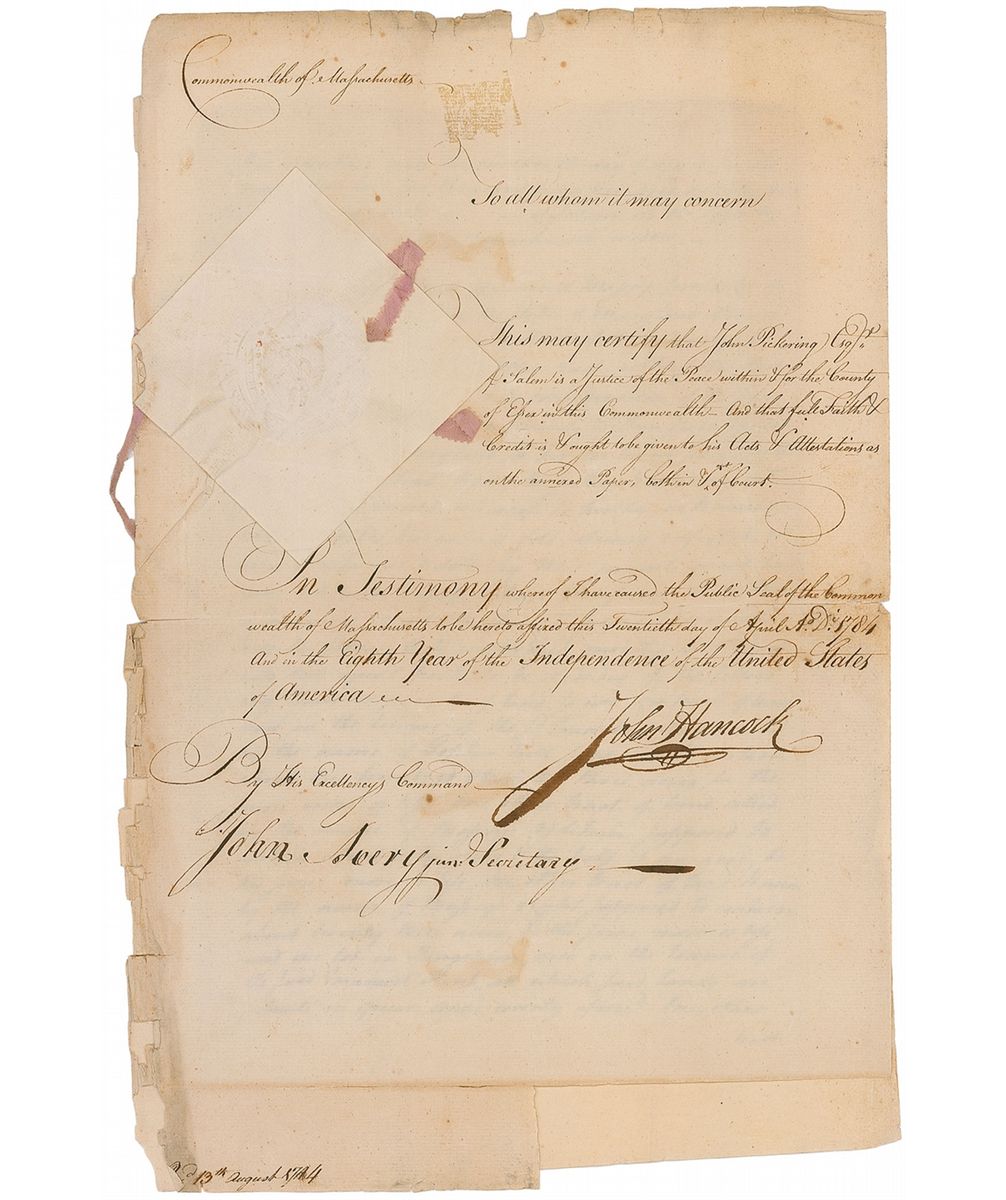 Commonwealth of Massachusetts
To all whom it may concern
This may certify that John Pickering Esqr.
of Salem is a Justice of the Peace within & for the County
of Essex in this Commonwealth And that full Faith &
Credit is & ought to be given to his Acts & Attestations as
on the annexed Paper, both in & of Court.
In Testimony whereof I have caused the Public Seal of the Common
wealth of Massachusetts to be hereto affixed this Twentieth day of April Ao. Di. 1784
And in the Eighth Year of the Independence of the United States
of America
John Hancock
By His Excellencys Command
John Avery junr. Secretary
13th August 1784